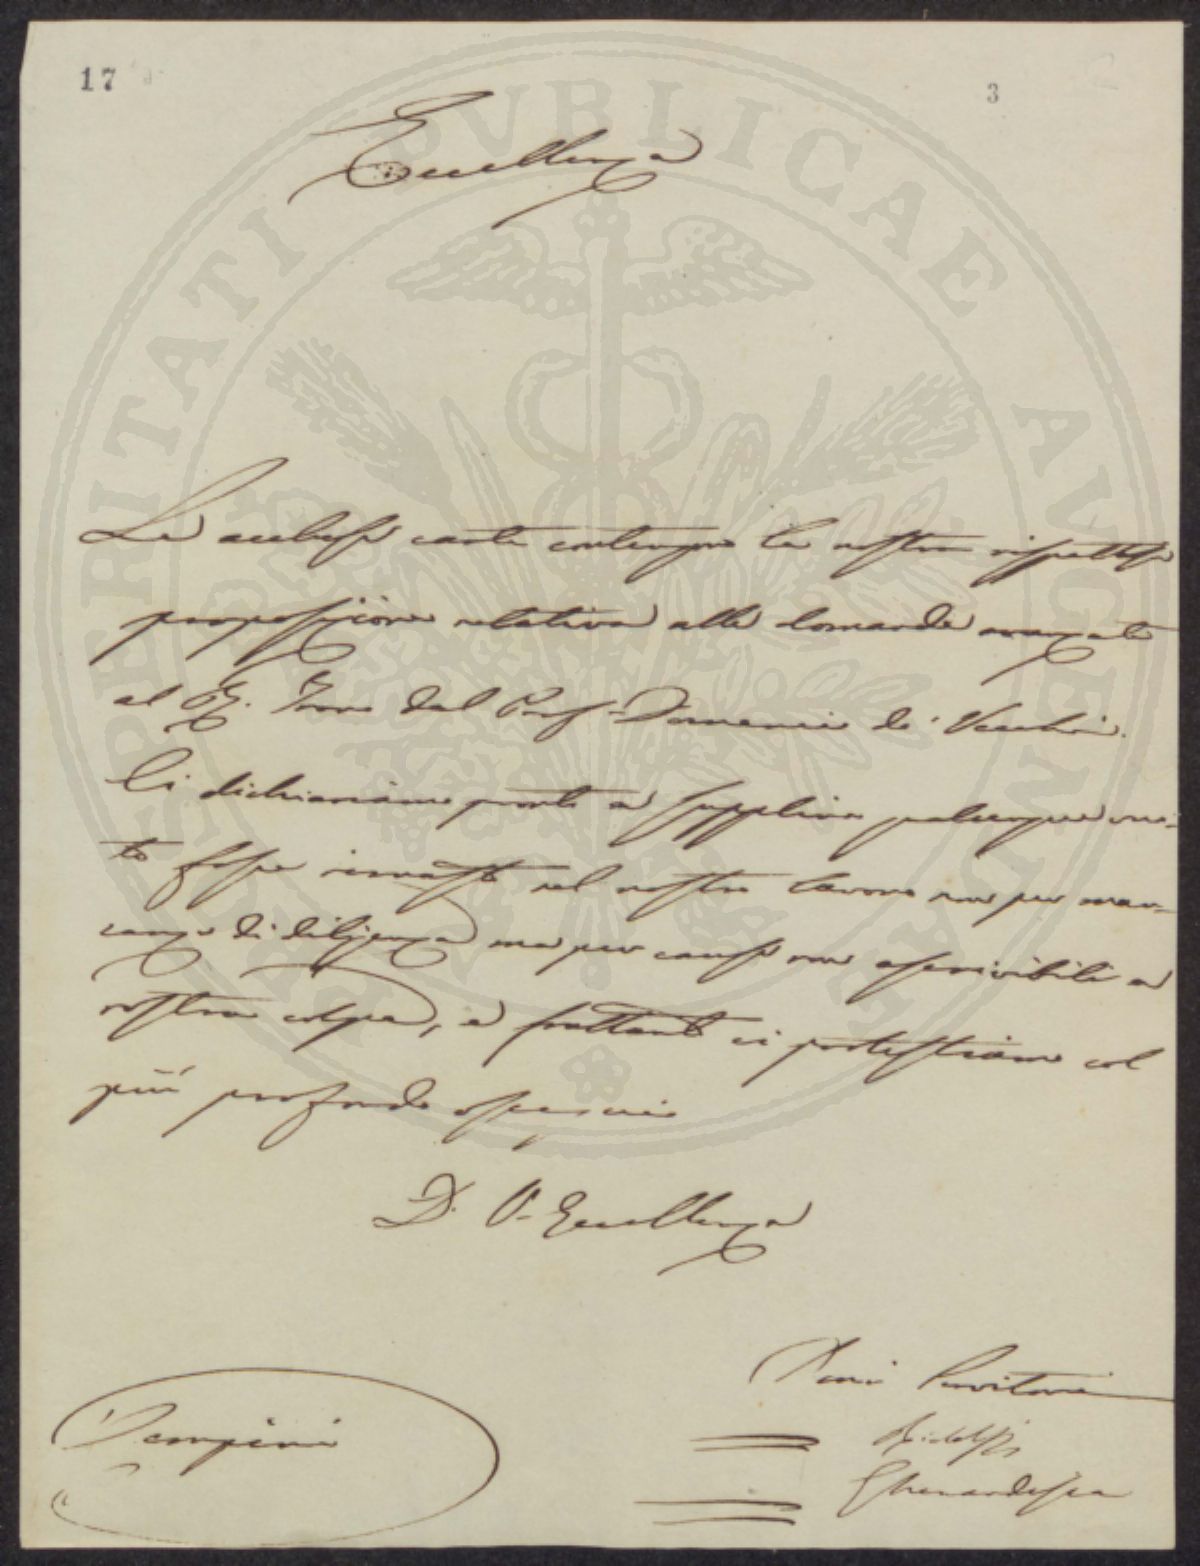 17
3
Eccellenza
Le accluse carte contengono la nostra rispettosa
proposizione relativa alla domanda avanzata
al Prof. Domenico de' Vecchi.
Ci dichiariamo pronti a supplire qualunque vuo-
to fosse rimasto nel nostro lavoro non per man-
canza di diligenza ma per cause non ascrivibili a
nostra colpa, e frattanto ci protestiamo col
più profondo ossequio
D. V. Eccellenza
Servitori
Ridolfi
Gherardesca
PROSPERITATI PUBLICAE AUGENDAE